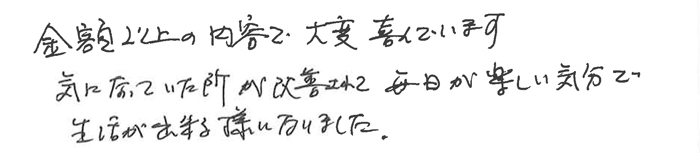 金額以上の内容で 大変喜んでいます
気になっていた所が改善されて 毎日が楽しい気分で
生活が出来る様になりました.